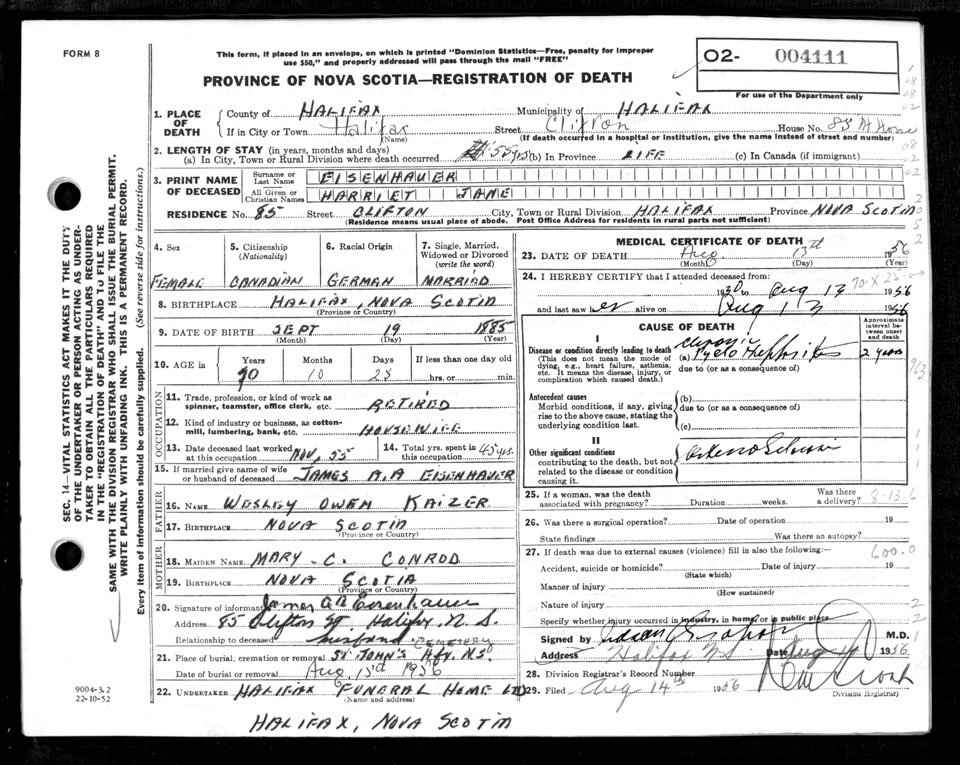 FORM 8
This form, if placed in an envelope, on which is printed "Dominion Statistics—Free, penalty for improper
use $50," and properly addressed will pass through the mail "FREE"
PROVINCE OF NOVA SCOTIA—REGISTRATION OF DEATH
02- 004111
For use of the Department only
1. PLACE OF DEATH
County of HALIFAX Municipality of HALIFAX
If in City or Town Halifax (Name) Street Clifton House No. 85
(If death occurred in a hospital or institution, give the name instead of street and number)
2. LENGTH OF STAY (in years, months and days)
(a) In City, Town or Rural Division where death occurred 55 yrs (b) In Province LIFE (c) In Canada (if immigrant)
3. PRINT NAME OF DECEASED
Surname or Last Name EISENHAUER
All Given or Christian Names HARRIET JANE
RESIDENCE No. 85 Street CLIFTON City, Town or Rural Division HALIFAX Province NOVA SCOTIA
(Residence means usual place of abode. Post Office Address for residents in rural parts not sufficient)
4. Sex FEMALE
5. Citizenship (Nationality) CANADIAN
6. Racial Origin GERMAN
7. Single, Married, Widowed or Divorced (write the word) MARRIED
8. BIRTHPLACE HALIFAX, NOVA SCOTIA
(Province or Country)
9. DATE OF BIRTH SEPT 19 1885
(Month) (Day) (Year)
10. AGE in Years 70 Months 10 Days 25 If less than one day old hrs. or min.
OCCUPATION
11. Trade, profession, or kind of work as spinner, teamster, office clerk, etc. RETIRED
12. Kind of industry or business, as cotton-mill, lumbering, bank, etc. HOUSEWIFE
13. Date deceased last worked at this occupation NOV, 55
14. Total yrs. spent in this occupation 45 yrs.
15. If married give name of wife or husband of deceased JAMES A.A EISENHAUER
FATHER
16. NAME WESLEY OWEN KAIZER
17. BIRTHPLACE NOVA SCOTIA
(Province or Country)
MOTHER
18. MAIDEN NAME MARY - C. CONROD
19. BIRTHPLACE NOVA SCOTIA
(Province or Country)
20. Signature of informant James AA Eisenhauer
Address 85 Clifton St. Halifax N.S.
Relationship to deceased husband
CEMETERY
21. Place of burial, cremation or removal ST JOHN'S Hfx. NS.
Date of burial or removal Aug. 15th 1956
22. UNDERTAKER HALIFAX FUNERAL HOME LTD
(Name and address)
HALIFAX, NOVA SCOTIA
MEDICAL CERTIFICATE OF DEATH
23. DATE OF DEATH Aug 13th 1956
(Month) (Day) (Year)
24. I HEREBY CERTIFY that I attended deceased from:
1930 to Aug 13 1956
and last saw her alive on Aug 13 1956
CAUSE OF DEATH
Approximate interval between onset and death
I
Disease or condition directly leading to death
(This does not mean the mode of dying, e.g., heart failure, asthenia, etc. It means the disease, injury, or complication which caused death.)
(a) chronic Pyelo Nephritis 2 years
due to (or as a consequence of)
Antecedent causes
Morbid conditions, if any, giving rise to the above cause, stating the underlying condition last.
(b)
due to (or as a consequence of)
(c)
II
Other significant conditions
contributing to the death, but not related to the disease or condition causing it.
25. If a woman, was the death associated with pregnancy? Duration weeks. Was there a delivery?
8-13-6
26. Was there a surgical operation? Date of operation 19
State findings Was there an autopsy?
27. If death was due to external causes (violence) fill in also the following:—
600.0
Accident, suicide or homicide? Date of injury 19
(State which)
Manner of injury
(How sustained)
Nature of injury
Specify whether injury occurred in industry, in home, or in public place.
Signed by M.D.
Address Halifax N.S. Date Aug 14 1956
28. Division Registrar's Record Number
29. Filed Aug 14th 1956
Division Registrar)
SEC. 14—VITAL STATISTICS ACT MAKES IT THE DUTY
OF THE UNDERTAKER OR PERSON ACTING AS UNDER-
TAKER TO OBTAIN ALL THE PARTICULARS REQUIRED
IN THE "REGISTRATION OF DEATH" AND TO FILE THE
SAME WITH THE DIVISION REGISTRAR WHO SHALL ISSUE THE BURIAL PERMIT.
WRITE PLAINLY WITH UNFADING INK. THIS IS A PERMANENT RECORD.
Every item of information should be carefully supplied. (See reverse side for instructions.)
9004-3.2
22-10-52